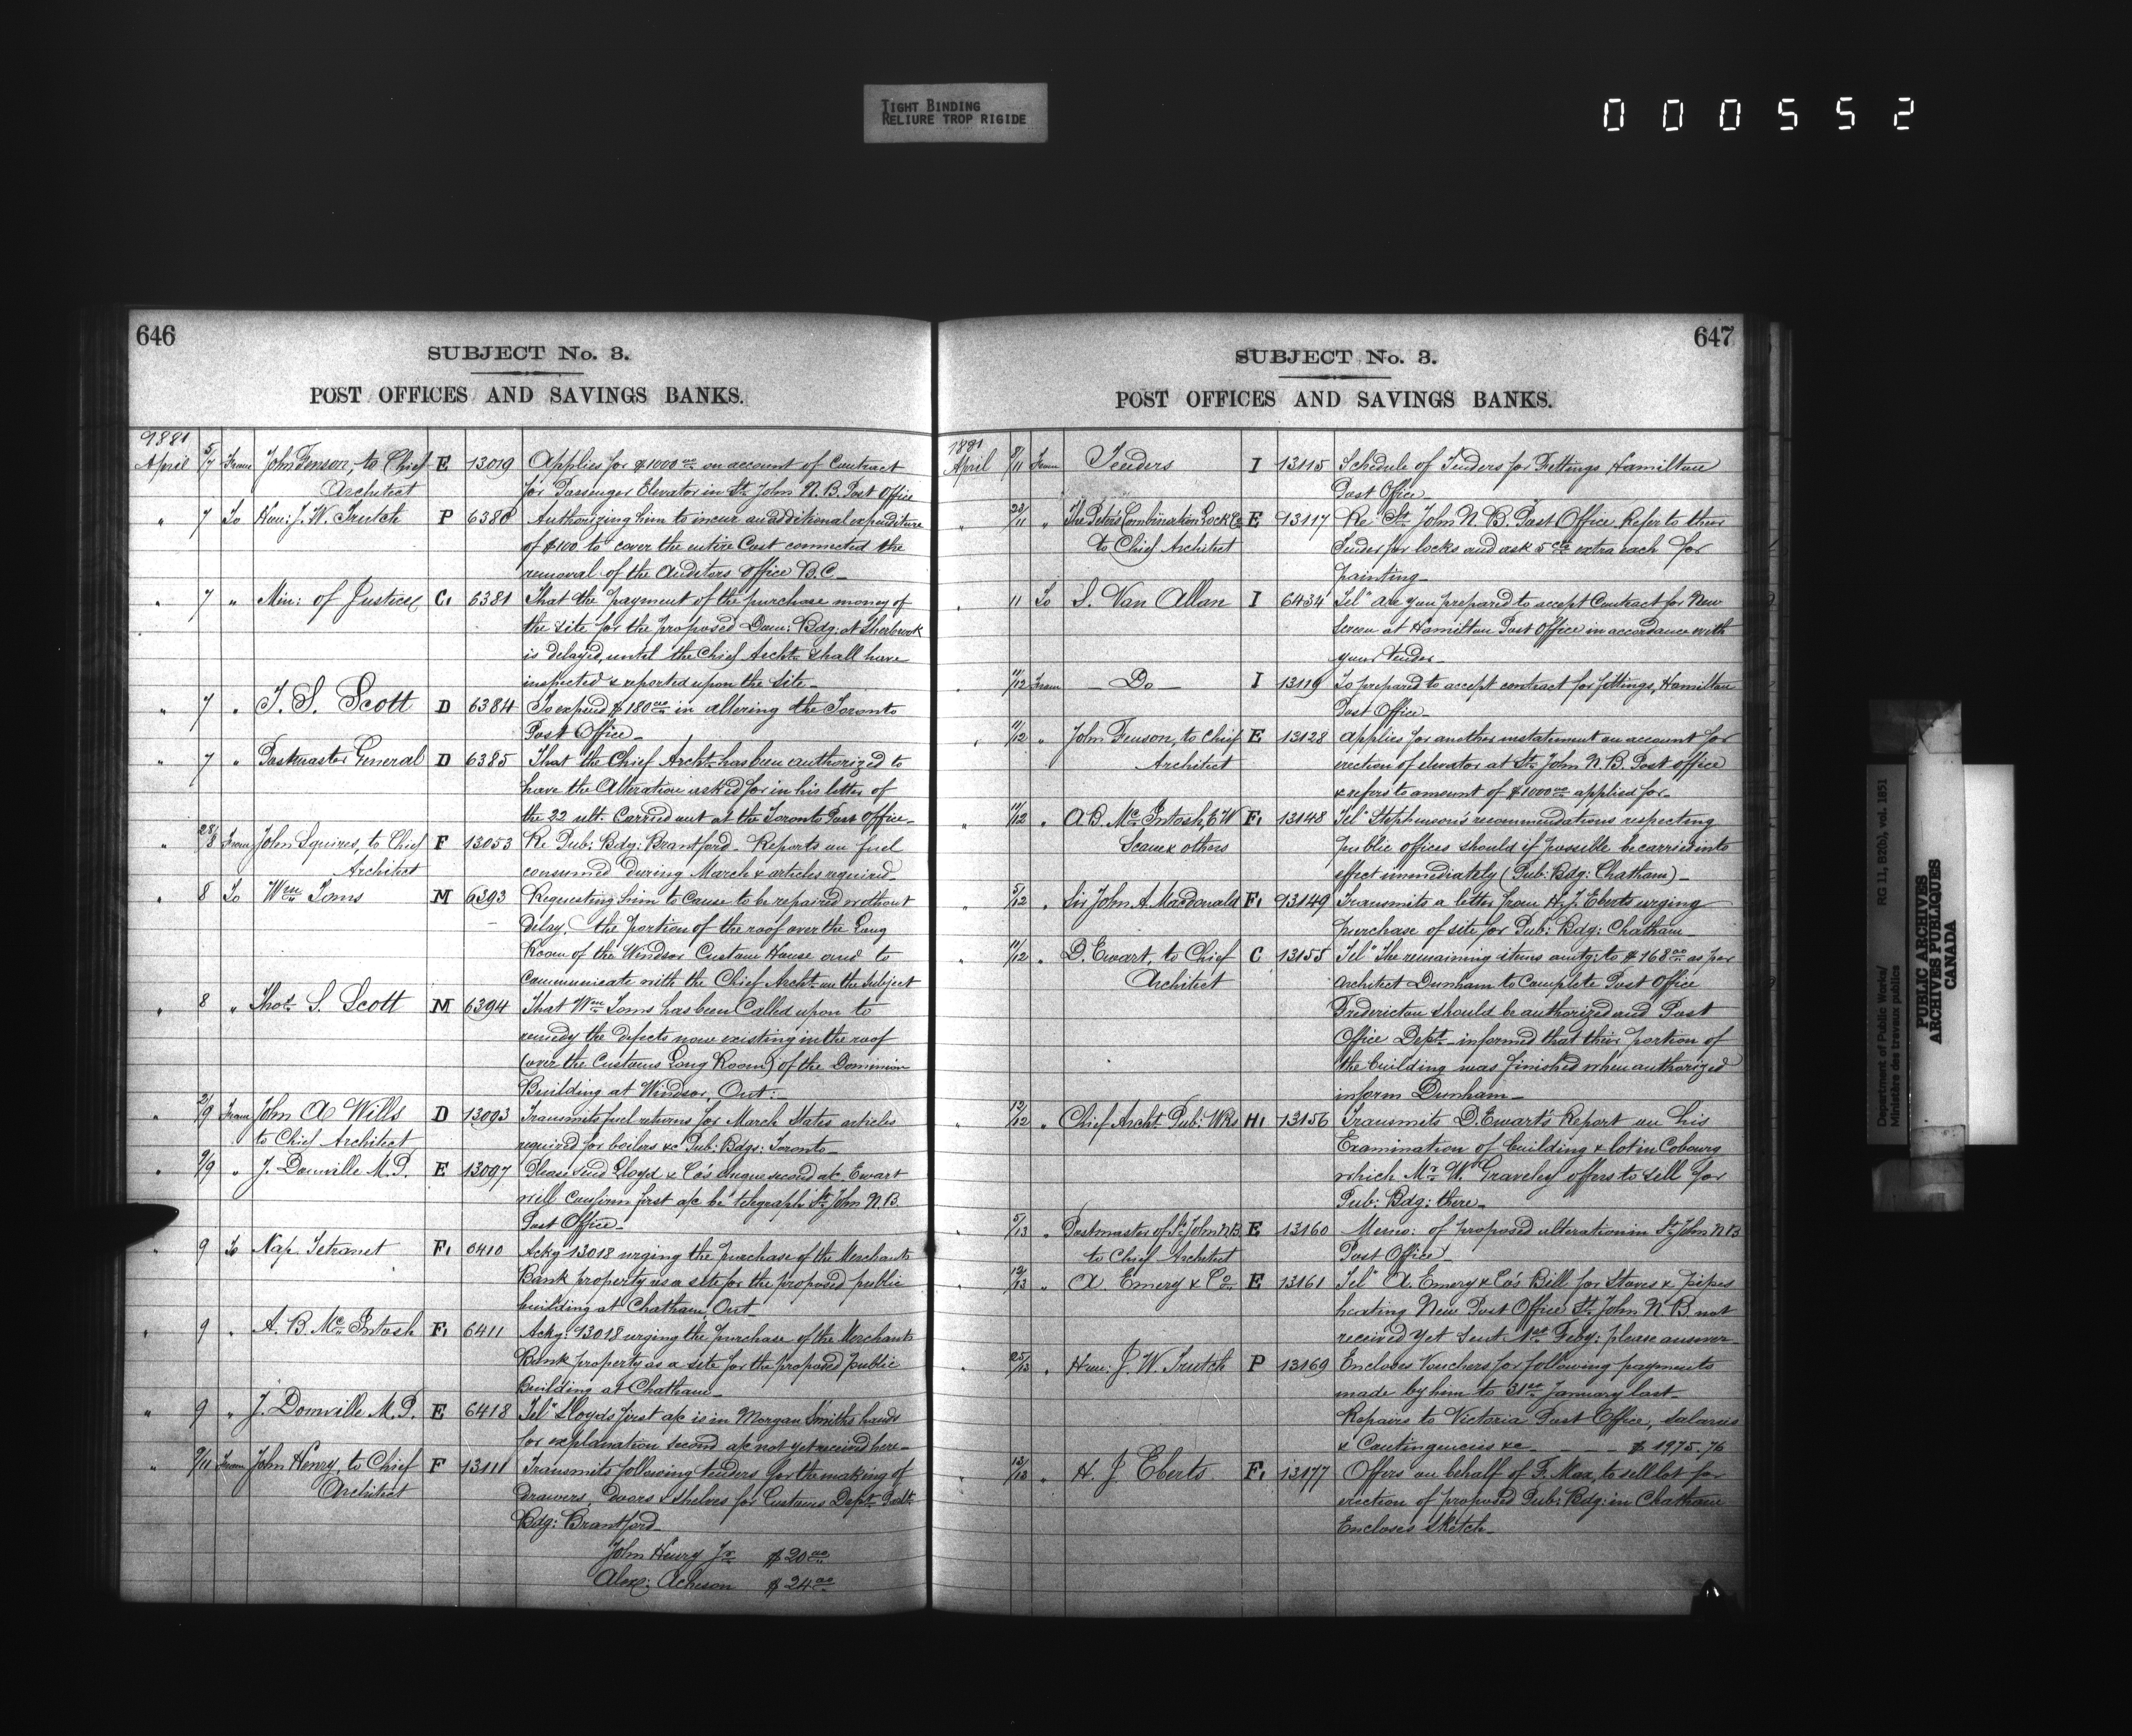 TIGHT BINDING
RELIURE TROP RIGIDE
000552
646
SUBJECT No. 3.
POST OFFICES AND SAVINGS BANKS.
1881
April 5/7 From John Fenson, to Chief E 13019 Applies for $1000.00 on account of Contract
Architect for Passenger Elevator in St. John N.B. Post Office
" 7 To Hon: J. W. Trutch P 6380 Authorizing him to incur an additional expenditure
of $100 to cover the entire Cost connected the
removal of the Auditors Office B.C.
" 7 " Min: of Justice C. 6381 That the payment of the purchase money of
the site for the proposed Dom: Bdg: at Sherbrook
is delayed, until the Chief Archt. shall have
inspected & reported upon the Site.
" 7 " T. S. Scott D 6384 To expend $180.00 in altering the Toronto
Post Office
" 7 " Postmaster General D 6385 That the Chief Archt. has been authorized to
have the Alteration asked for in his letter of
the 22 ult. Carried out at the Toronto Post Office
" 28/8 From John Squires, to Chief F 13053 Re Pub: Bdg: Brantford. Reports on fuel
Architect consumed during March & articles required
" 8 To Wm Toms M 6393 Requesting him to Cause to be repaired without
Delay, the portion of the roof over the Long
Room of the Windsor Custom House and to
Communicate with the Chief Archt. on the subject
" 8 " Thos. S. Scott M 6394 That Wm Toms has been Called upon to
remedy the defects now existing in the roof
(over the Customs Long Room) of the Dominion
Building at Windsor, Ont:
" 2/9 From John A Wills D 13093 Transmits fuel returns for March States articles
to Chief Architect required for boilers &c Pub: Bdgs: Toronto
" 9/9 " J. Domville M.P. E 13097 Please send Lloyd & Co's cheque second a/c Ewart
will confirm first a/c be telegraph St. John N.B.
Post Office
" 9 To Nap Tetranet F. 6410 Ackg 13018 urging the purchase of the Merchants
Bank property as a site for the proposed public
building at Chatham, Ont
" 9 " A. B. McIntosh F. 6411 Ackg: 13018 urging the purchase of the Merchants
Bank property as a site for the proposed public
Building at Chatham
" 9 " J. Domville M.P. E 6418 Tel" Lloyds first a/c is in Morgan Smiths hands
for explanation second a/c not yet received here
" 9/11 From John Henry, to Chief F 13111 Transmits following tenders for the making of
Architect drawers, Doors & shelves for Customs Dept.
Bdg: Brantford
John Henry Jr $20.00
Alex: Acheson $24.00
647
SUBJECT No. 3.
POST OFFICES AND SAVINGS BANKS.
1881
April 8/11 From Tenders I 13115 Schedule of Tenders for Fittings Hamilton
Post Office
" 22/11 " The Peters Combination Lock Co E 13117 Re St. John N. B. Post Office Refer to their
to Chief Architect Tender for locks and ask 5 cts extra each for
painting
" 11 To S. Van Allan I 6434 Tel" Are you prepared to accept Contract for New
Screen at Hamilton Post Office in accordance with
your tender
" 11/12 From Do I 13119 Is prepared to accept contract for fittings, Hamilton
Post Office
" 11/12 " John Fenson, to Chief E 13128 Applies for another instatement on account for
Architect erection of elevator at St. John N.B. Post Office
& refers to amount of $1000.00 applied for
" 11/12 " A B. McIntosh, E W F. 13148 Tel" Stephenson's recommendations respecting
Scane & others public offices should if possible be carried into
effect immediately (Pub: Bdg: Chatham)
" 5/12 " Sir John A. Macdonald F. 13149 Transmits a letter from H. J. Eberts urging
purchase of site for Pub: Bdg: Chatham
" 11/12 " D. Ewart, to Chief C 13155 Tel" The remaining items amtg: to $168.00 as per
Architect Architect Dunham to Complete Post Office
Fredericton should be authorized and Post
Office Dept. informed that their portion of
the building was finished when authorized
inform Dunham
" 12/12 " Chief Archt. Pub: Wks H. 13156 Transmits D. Ewart's Report on his
Examination of building & lot in Cobourg
which Mr W. Graveley offers to sell for
Pub: Bdg: there
" 5/13 " Postmaster of St. John N.B. E 13160 Memo: of proposed alteration in St. John N.B
to Chief Architect Post Office
" 12/13 " A. Emery & Co. E 13161 Tel" A. Emery & Co's Bill for Stoves & pipes
heating New Post Office St. John N B not
received yet sent 1st Feby: please answer
" 25/13 " Hon: J. W. Trutch P 13169 Encloses Vouchers for following payments
made by him to 31st January last
Repairs to Victoria Post Office, Salaries
& Contingencies &c $ 1975.76
" 13/13 " H. J. Eberts F. 13177 Offers on behalf of F. Max, to sell lot for
erection of proposed Pub: Bdg: in Chatham
Encloses Sketch
Department of Public Works/ RG 11, B2(b), vol. 1851
Ministère des travaux publics
PUBLIC ARCHIVES
ARCHIVES PUBLIQUES
CANADA